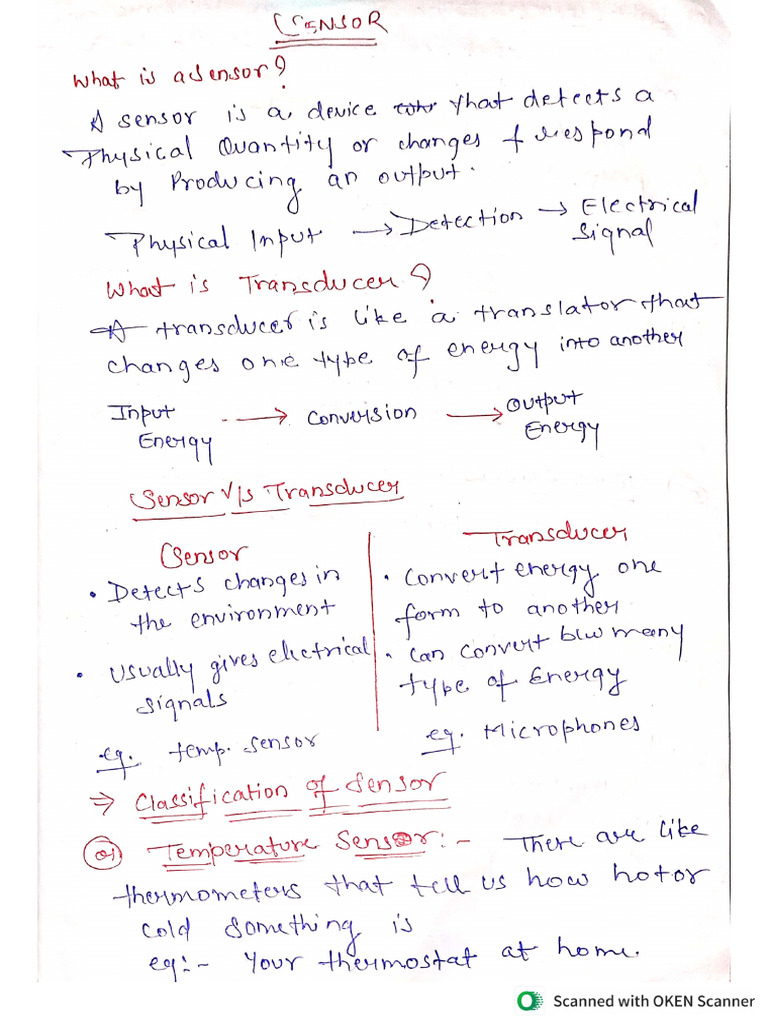 SENSOR
What is a Sensor?
A sensor is a device that detects a
Physical Quantity or changes & respond
by Producing an output.
Physical Input → Detection → Electrical
Signal
What is Transducer?
A transducer is like a translator that
changes one type of energy into another
Input → Conversion → Output
Energy Energy
Sensor V/s Transducer
Sensor
• Detects changes in
the environment
• Usually gives electrical
signals
eg. temp. sensor
Transducer
• Convert energy one
form to another
• Can convert b/w many
type of Energy
eg. Microphones
⇒ Classification of Sensor
01 Temperature Sensor:- There are like
thermometers that tell us how hot or
cold something is
eg:- Your thermostat at home.
Scanned with OKEN Scanner